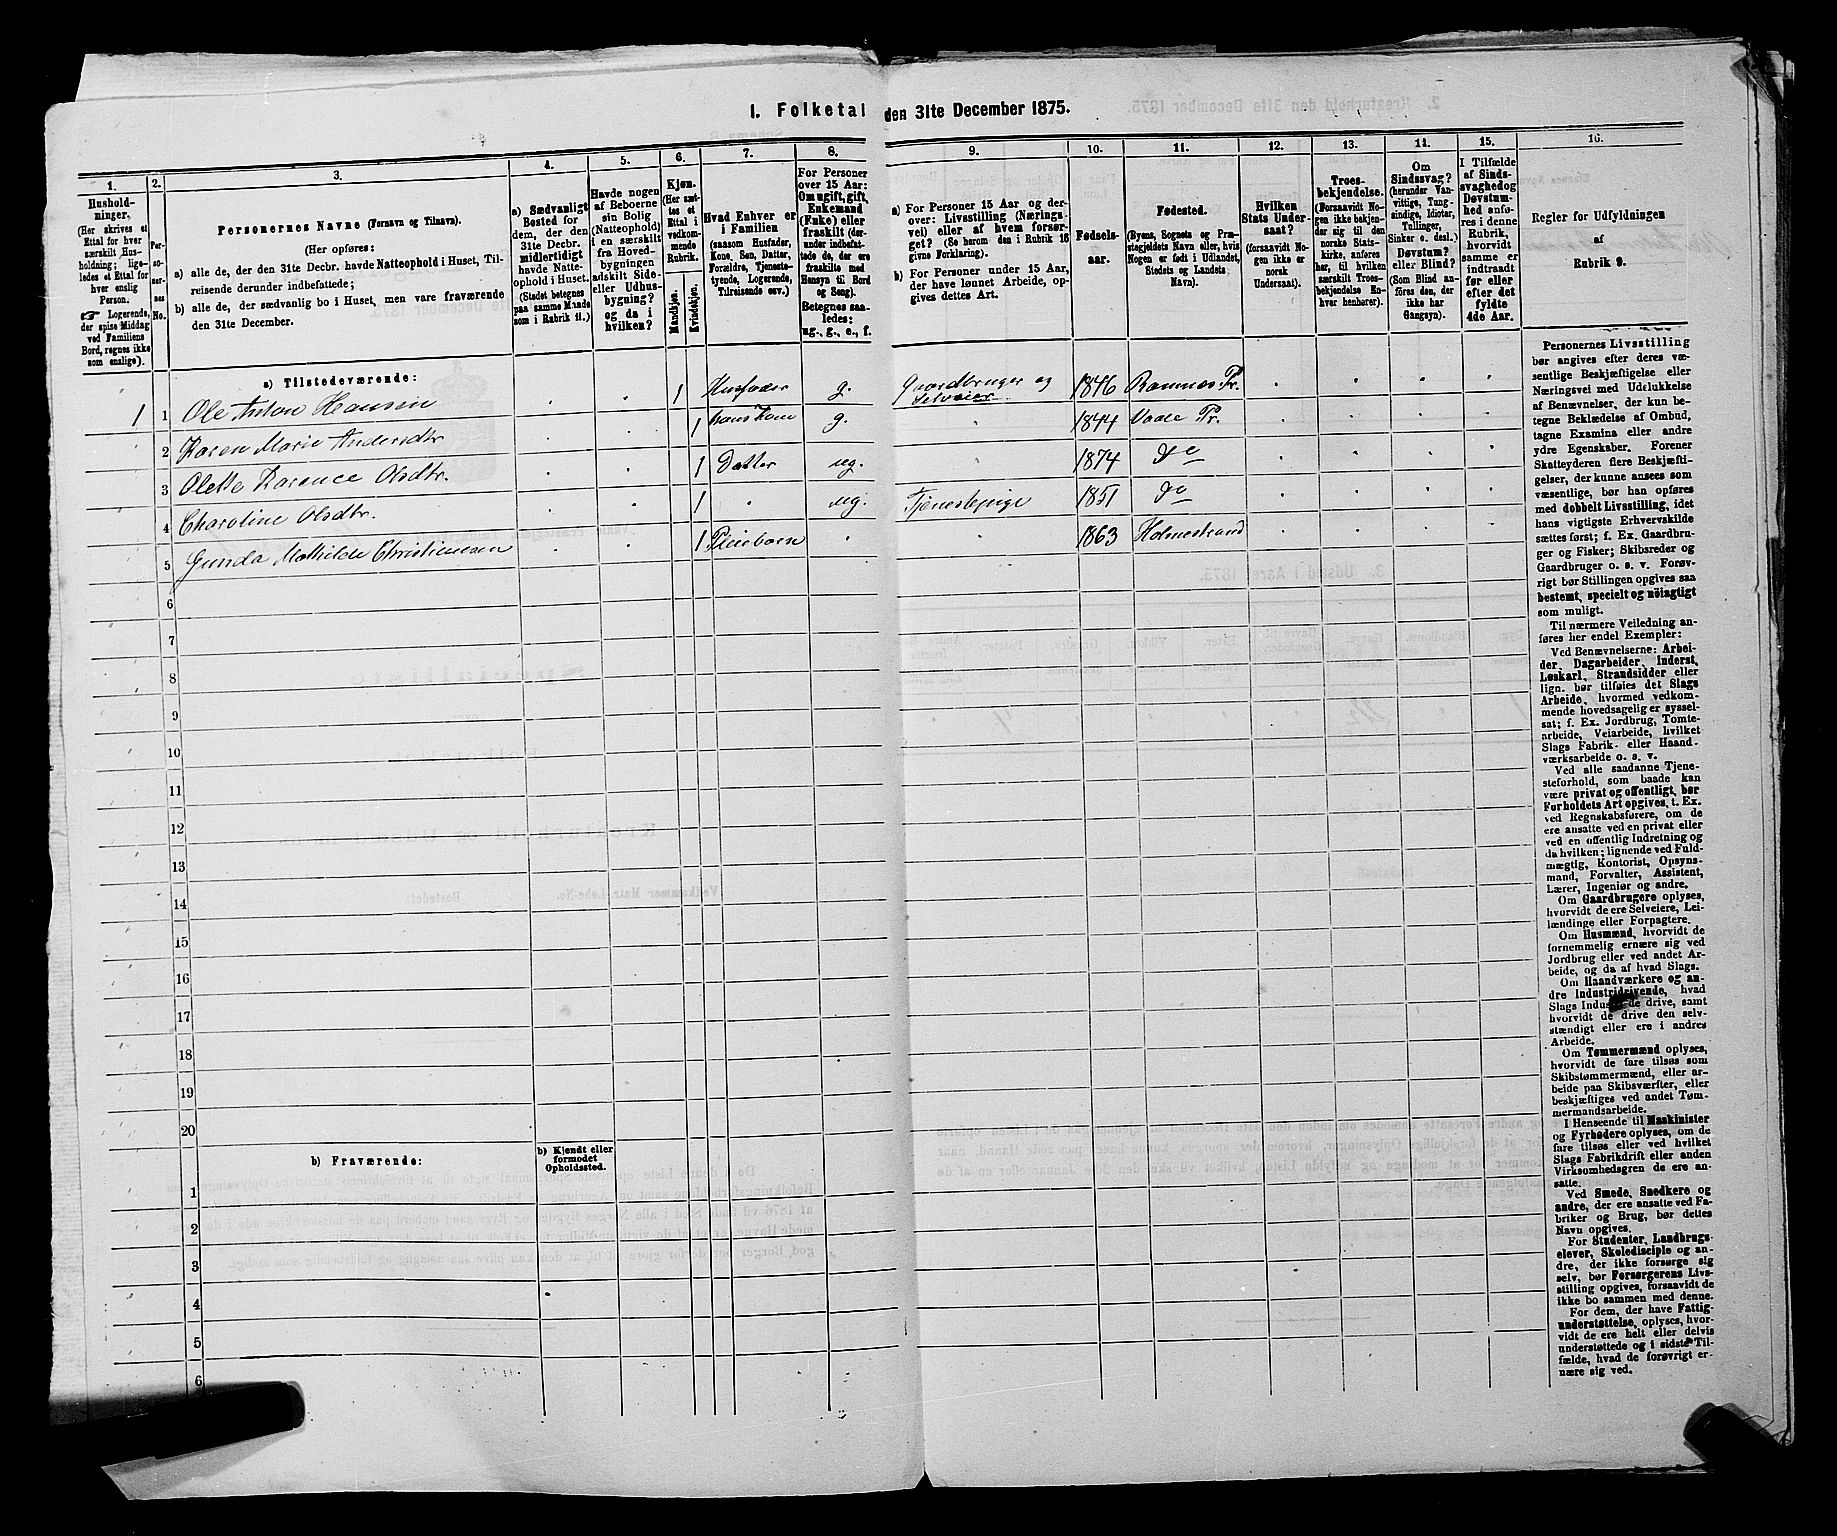 1. Folketal den 31te December 1875.
1.
2.
3.
4.
5.
6.
7.
8.
9.
10.
11.
12.
13.
14.
15.
16.
Hushold-
ninger.
(Her skrives et
Ettal for hver
særskilt Hus-
holdning; lige-
ledes et Ettal for
hver enslig
Person.
☞ Logerende,
der spise Middag
ved Familiens
Bord, regnes ikke
som enslige).
Per-
so-
ner-
nes
No.
Personernes Navne (Fornavn og Tilnavn).
(Her opføres:
a) alle de, der den 31te Decbr. havde Natteophold i Huset, Til-
reisende derunder indbefattede;
b) alle de, der sædvanlig bo i Huset, men vare fraværende
den 31te December.
a) Sædvanligt
Bosted for
dem, der den
31te Decbr.
midlertidigt
havde Natte-
ophold i Huset.
(Stedet betegnes
paa samme Maade
som i Rubrik 11.)
Havde nogen
af Beboerne
sin Bolig
(Natteophold)
i en særskilt
fra Hoved-
bygningen
adskilt Side-
eller Udhus-
bygning?
og da i
hvilken?
Kjøn.
(Her sæt-
tes et
Ettal i
vedkom-
mende
Rubrik.
Mandkjøn.
Kvindekjøn.
Hvad Enhver er
i Familien
(saasom Husfader,
Kone, Søn, Datter,
Forældre, Tjeneste-
tyende, Logerende,
Tilreisende osv.)
For Personer
over 15 Aar:
Om ugift, gift,
Enkemand
(Enke) eller
fraskilt (der-
under indbefat-
tede de, der ere
fraskilte med
Hensyn til Bord
og Seng).
Betegnes saa-
ledes:
ug., g., e., f.
a) For Personer 15 Aar og der-
over: Livsstilling (Nærings-
vei) eller af hvem forsør-
get? (Se herom den i Rubrik 16
givne Forklaring).
b) For Personer under 15 Aar,
der have lønnet Arbeide, op-
gives dettes Art.
Fødsels-
aar.
Fødested.
(Byens, Sognets og Præ-
stegjeldets Navn eller, hvis
Nogen er født i Udlandet,
Stedets og Landets
Navn).
Hvilken
Stats Under-
saat?
(forsaavidt No-
gen ikke er
norsk
Undersaat).
Troes-
bekjendelse.
(Forsaavidt No-
gen ikke bekjen-
der sig til den
norske Stats-
kirke, anføres
her, til hvilken
særskilt Troes-
bekjendelse En-
hver henhører).
Om
Sindssvag?
(herunder Van-
vittige, Tung-
sindige, Idioter,
Tullinger,
Sinker o. desl.)
Døvstum?
eller Blind?
(Som Blind an-
føres den, der
ikke har
Gangsyn).
I Tilfælde
af Sinds-
svaghed og
Døvstum-
hed anfø-
res i denne
Rubrik,
hvorvidt
samme er
indtraadt
før eller
efter det
fyldte
4de Aar.
Regler for Udfyldningen
af
Rubrik 9.
a) Tilstedeværende:
1 1 Ole Anton Hansen 1 Husfader g. Gaardbruger og Selveier 1846 Ramnes Pr.
2 Karen Marie Andersdtr 1 hans Kone g. 1844 Vaale Pr.
3 Olette Karence Olsdtr. 1 Datter ug. 1874 do
4 Charoline Olsdtr. 1 ug. Tjenestepige 1851 do
5 Gunda Mathilde Christiansen 1 Pleiebarn 1863 Holmestrand
6
7
8
9
10
11
12
13
14
15
16
17
18
19
20
b) Fraværende:
b) Kjendt eller
formodet
Opholdssted.
1
2
3
4
5
6
Personernes Livsstilling
bør angives efter deres væ-
sentlige Beskjæftigelse eller
Næringsvei med Udelukkelse
af Benævnelser, der kun be-
tegne Beklædelse af Ombud,
tagne Examina eller andre
ydre Egenskaber. Forener
Skatteyderen flere Beskjæfti-
gelser, der kunne ansees som
væsentlige, bør han opføres
med dobbelt Livsstilling, idet
hans vigtigste Erhvervskilde
sættes først; f. Ex. Gaardbru-
ger og Fisker; Skibsreder og
Gaardbruger o. s. v. Forøv-
rigt bør Stillingen opgives saa
bestemt, specielt og nöiagtigt
som muligt.
Til nærmere Veiledning an-
føres her endel Exempler:
Ved Benævnelserne: Arbei-
der, Dagarbeider, Inderst,
Løskarl, Strandsidder eller
lign. bør tilføies det Slags
Arbeide, hvormed vedkom-
mende hovedsagelig er syssel-
sat; f. Ex. Jordbrug, Tomte-
arbeide, Veiarbeide, hvilket
Slags Fabrik- eller Haand-
værksarbeide o. s. v.
Ved alle saadanne Tjene-
steforhold, som baade kan
være privat og offentligt, bør
Forholdets Art opgives, t. Ex.
ved Regnskabsførere, om de
ere ansatte ved en privat eller
ved en offentlig Indretning og
da hvilken; lignende ved Fuld-
mægtig, Kontorist, Opsyns-
mand, Forvalter, Assistent,
Lærer, Ingeniør og andre.
Om Gaardbrugere oplyses,
hvorvidt de ere Selveiere, Lei-
lændinge eller Forpagtere.
Om Husmænd, hvorvidt de
fornemmelig ernære sig ved
Jordbrug eller ved andet Ar-
beide, og da af hvad Slags.
Om Haandværkere og an-
dre Industridrivende, hvad
Slags Industri de drive, samt
hvorvidt de drive den selv-
stændigt eller ere i andres
Arbeide.
Om Tømmermænd oplyses,
hvorvidt de fare tilsøs som
Skibstømmermænd, eller ar-
beide paa Skibsværfter, eller
beskjæftiges ved andet Tøm-
mermandsarbeide.
I Henseende til Maskinister
og Fyrbødere oplyses, om de
fare tilsøs eller ved hvilket
Slags Fabrikdrift eller anden
Virksomhedsgren de ere an-
satte.
Ved Smede, Snedkere og
andre, der ere ansatte ved Fa-
briker og Brug, bør dettes
Navn opgives.
For Studenter, Landbrugs-
elever, Skoledisciple og an-
dre, der ikke forsørge sig
selv, bør Forsørgerens Livs-
stilling opgives, forsaavidt de
ikke bo sammen med denne.
For dem, der have Fattig-
understøttelse, oplyses, hvor-
vidt de ere helt eller delvis
understøttede og i sidste Til-
fælde, hvad de forøvrigt er-
nære sig ved.